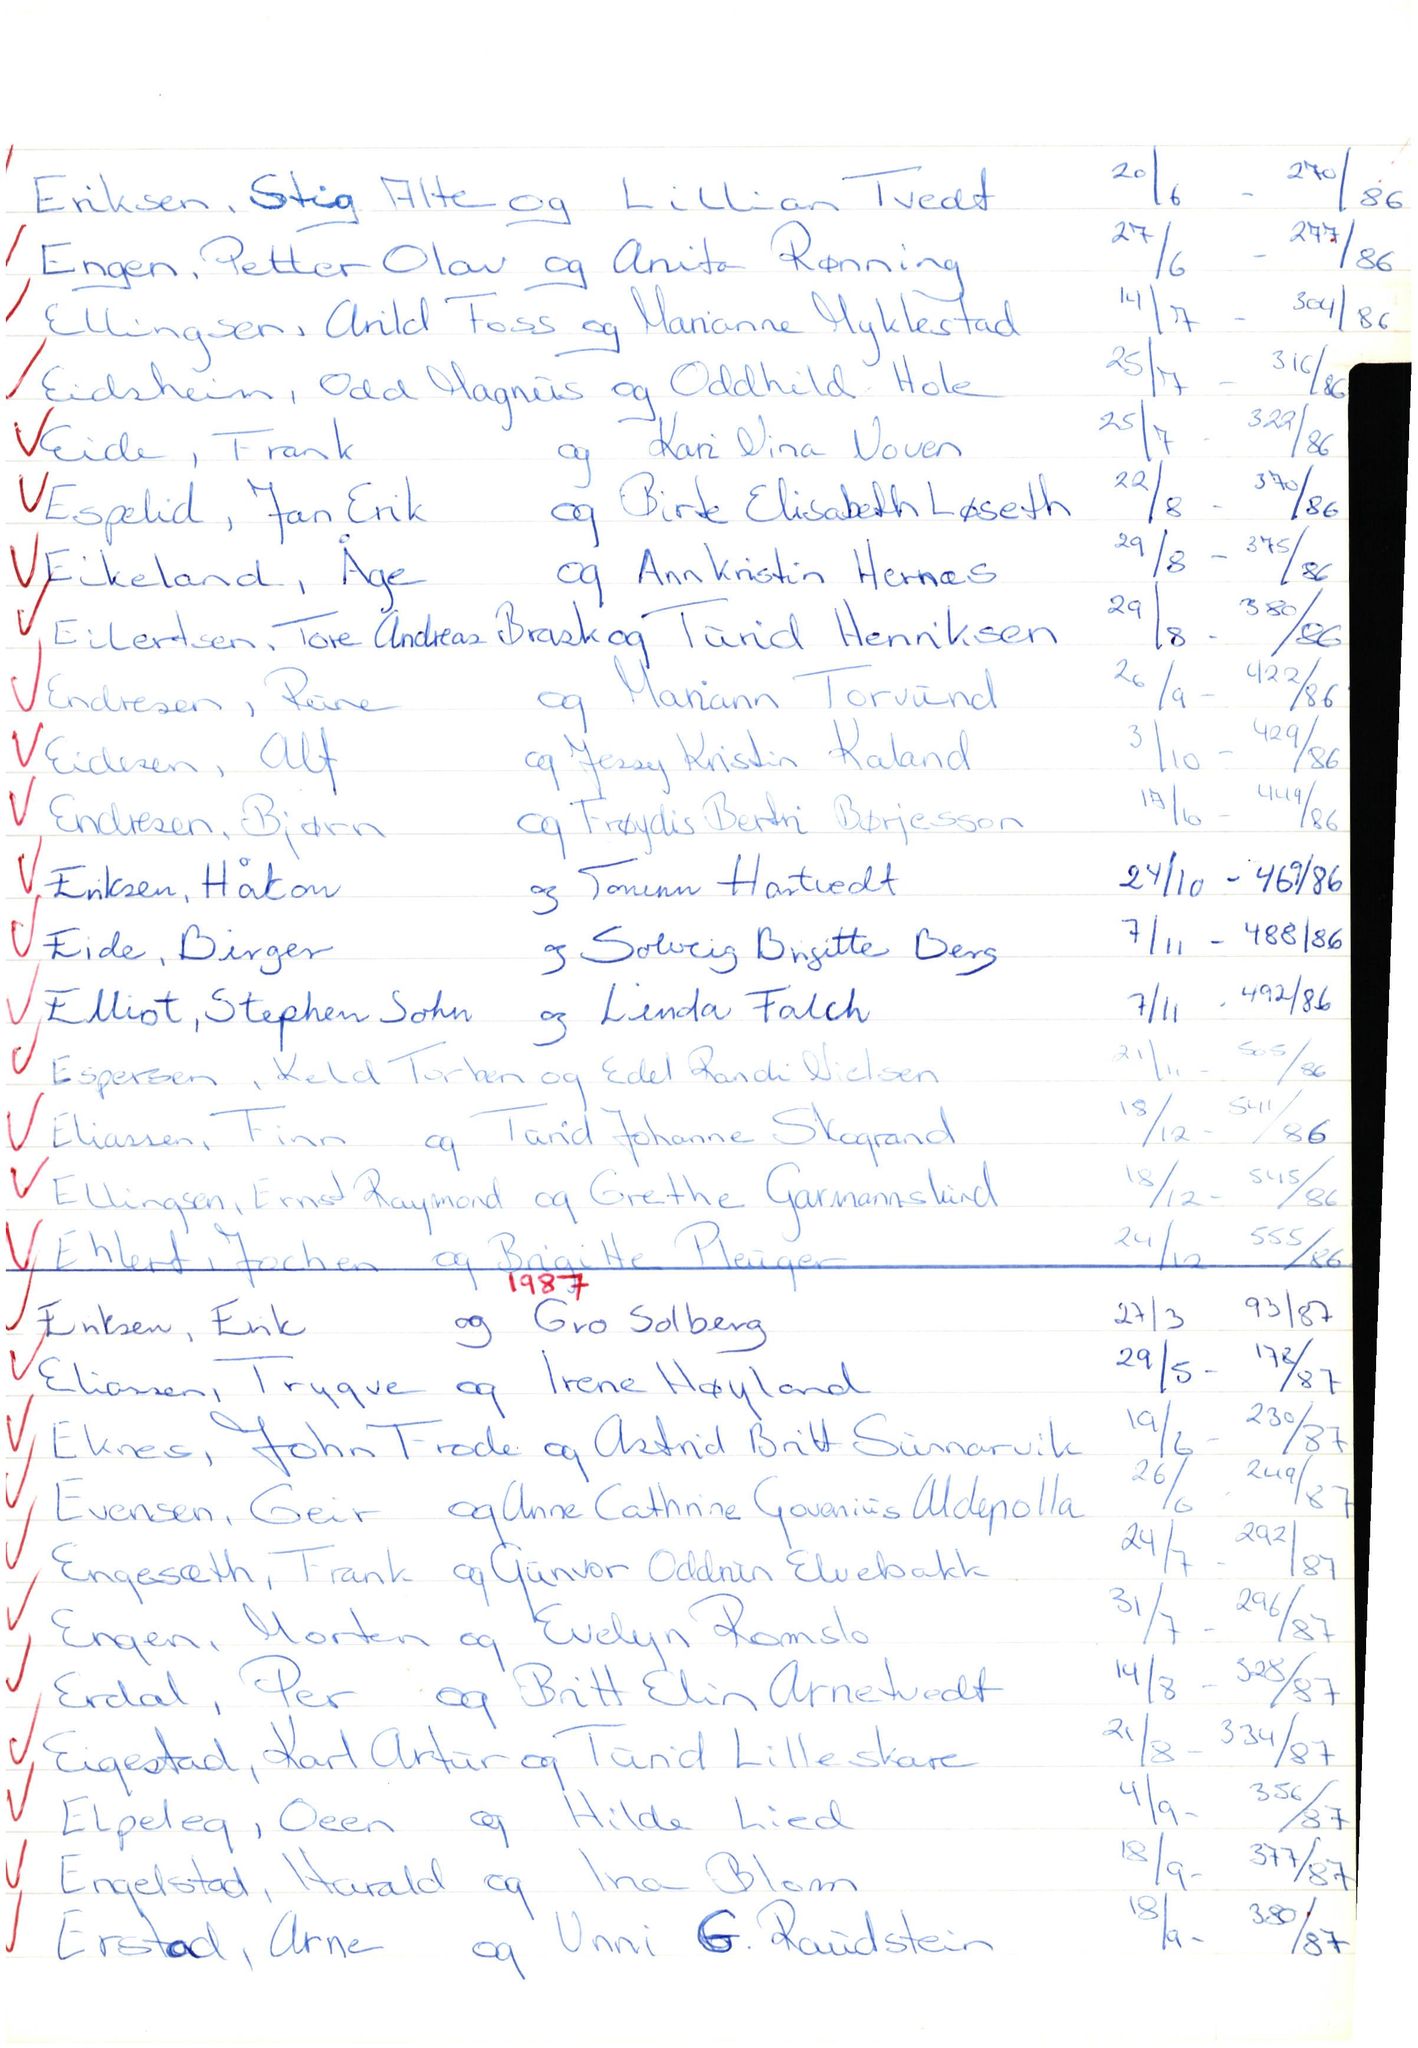 Eriksen, Stig Atle og Lillian Tvedt 20/6 - 270/86
Engen, Petter Olav og Anita Rønning 27/6 - 277/86
Ellingsen, Arild Foss og Marianne Myklestad 14/7 - 304/86
Eidsheim, Odd Magnus og Oddhild Hole 25/7 - 316/86
Eide, Frank og Kari Nina Noven 25/7 - 322/86
Espelid, Jan Erik og Birte Elisabeth Løseth 22/8 - 370/86
Eikeland, Åge og Ann Kristin Hernes 29/8 - 375/86
Eilertsen, Tore Andreas Brask og Turid Henriksen 29/8 - 380/86
Endresen, Rune og Mariann Torvund 26/9 - 422/86
Eidesen, Alf og Jessy Kristin Kaland 3/10 - 429/86
Endresen, Bjørn og Frøydis Børjesson 17/10 - 449/86
Eriksen, Håkon og Tonenn Hartvedt 24/10 - 469/86
Eide, Birger og Solveig Brigitte Berg 7/11 - 488/86
Elliot, Stephen John og Linda Falch 7/11 - 492/86
Espersen, Keld Torben og Edel Randi Nielsen 21/11 - 505/86
Eliassen, Finn og Turid Johanne Skogrand 18/12 - 541/86
Ellingsen, Ernst Raymond og Grethe Garmannslund 18/12 - 545/86
Ehlert, Jochen og Brigitte Pleuger 24/12 555/86
1987
Eriksen, Erik og Gro Solberg 27/3 93/87
Eliassen, Trygve og Irene Høyland 29/5 - 178/87
Eknes, John Frode og Astrid Britt Sunnarvik 19/6 - 230/87
Evensen, Geir og Anne Cathrine Govenius Aldepolla 26/6 - 249/87
Engesæth, Frank og Gunvor Oddrun Elvebakk 24/7 - 292/87
Engen, Morten og Evelyn Romslo 31/7 - 296/87
Erdal, Per og Britt Elin Arnetvedt 14/8 - 328/87
Eigestad, Karl Artur og Turid Lilleskare 21/8 - 334/87
Elpeleg, Oeen og Hilde Lied 4/9 - 356/87
Engelstad, Harald og Ina Blom 18/9 - 377/87
Erstad, Arne og Unni G. Raudstein 18/9 - 380/87